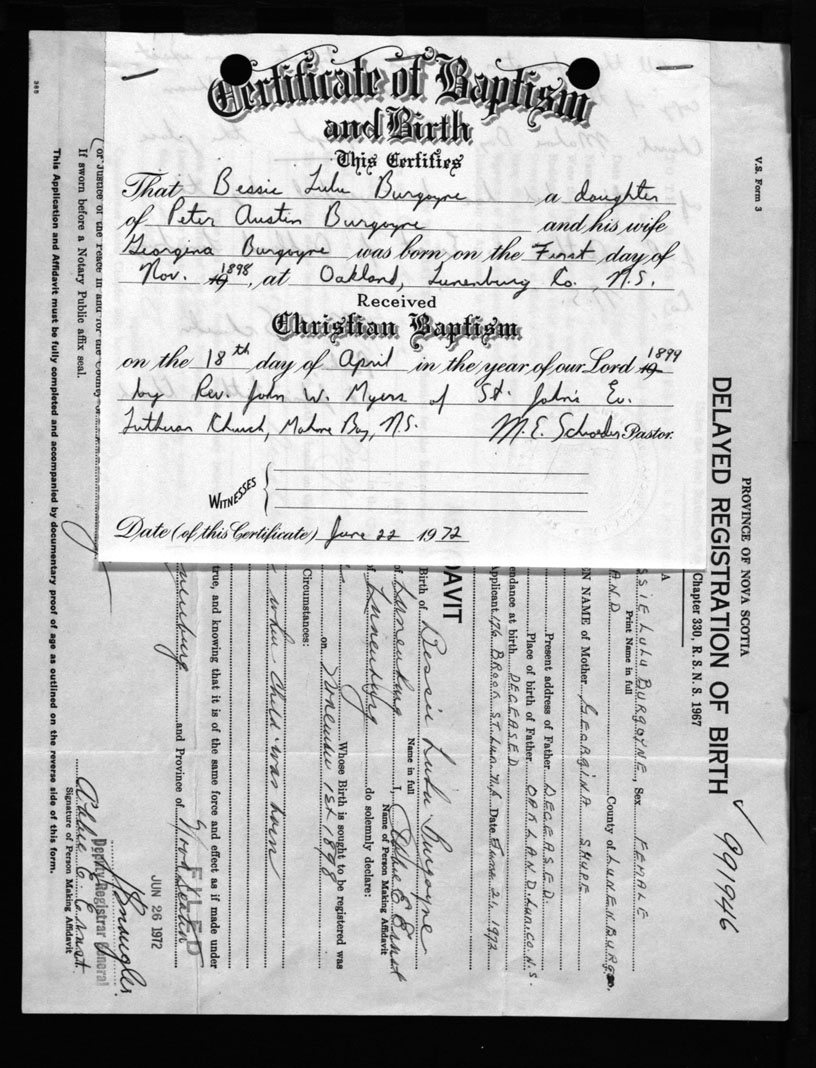 Certificate of Baptism
and Birth
This Certifies
That Bessie Lulu Burgoyne a daughter
of Peter Austin Burgoyne and his wife
Georgina Burgoyne was born on the First day of
Nov. 19 1898, at Oakland, Lunenburg Co. N.S.
Received
Christian Baptism
on the 18th day of April in the year of our Lord 19 1899
by Rev. John W. Myers of St. John's Ev.
Lutheran Church, Mahone Bay, N.S. M.E. Schroeder Pastor.
WITNESSES
Date (of this Certificate) June 22 1972
V.S. Form 3
PROVINCE OF NOVA SCOTIA
DELAYED REGISTRATION OF BIRTH
991946
Chapter 330, R. S. N. S. 1967
SSIE LULU BURGOYNE, Sex FEMALE
Print Name in full
AND County of LUNENBURG
N NAME of Mother GEORGINA SHUPE
Present address of Father DECEASED
Place of birth of Father OAKLAND, Lun. Co. N.S.
endance at birth DECEASED
Applicant 176 BROOK ST. Lun. N.S. Date June 21, 1972
DAVIT
Birth of Bessie Lulu Burgoyne
Name in full
of Lunenburg I, Abbie E Ernst
Name of Person Making Affidavit
of Lunenburg do solemnly declare:
Whose Birth is sought to be registered was
on November 1st 1898
Circumstances:
when child was born
true, and knowing that it is of the same force and effect as if made under
FILED
and Province of Nova Scotia
JUN 26 1972
Deputy Registrar General
Abbie E. Ernst
Signature of Person Making Affidavit
(or Justice of the Peace in and for the County of
If sworn before a Notary Public affix seal.
This Application and Affidavit must be fully completed and accompanied by documentary proof of age as outlined on the reverse side of this form.